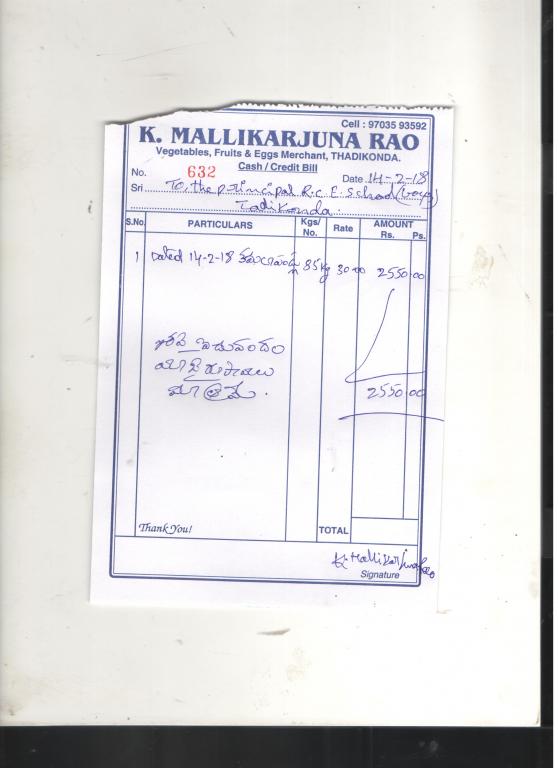 Cell : 97035 93592
K. MALLIKARJUNA RAO
Vegetables, Fruits & Eggs Merchant, THADIKONDA.
Cash / Credit Bill
No. 632 Date 14-2-18
Sri To, the principal R.C.E. School (boys)
Tadikonda.
S.No. PARTICULARS Kgs/ No. Rate AMOUNT Rs. Ps.
1 Dated 14-2-18 85 kg 30-00 2550.00
రూపాయలు
మాత్రమే.
2550 00
Thank You! TOTAL
K. Mallikarjuna Rao
Signature